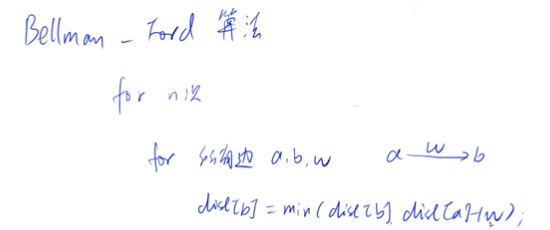 Bellman - Ford 算法
for n次
for 所有边 a,b,w a —w→ b
dist[b] = min(dist[b], dist[a]+w);